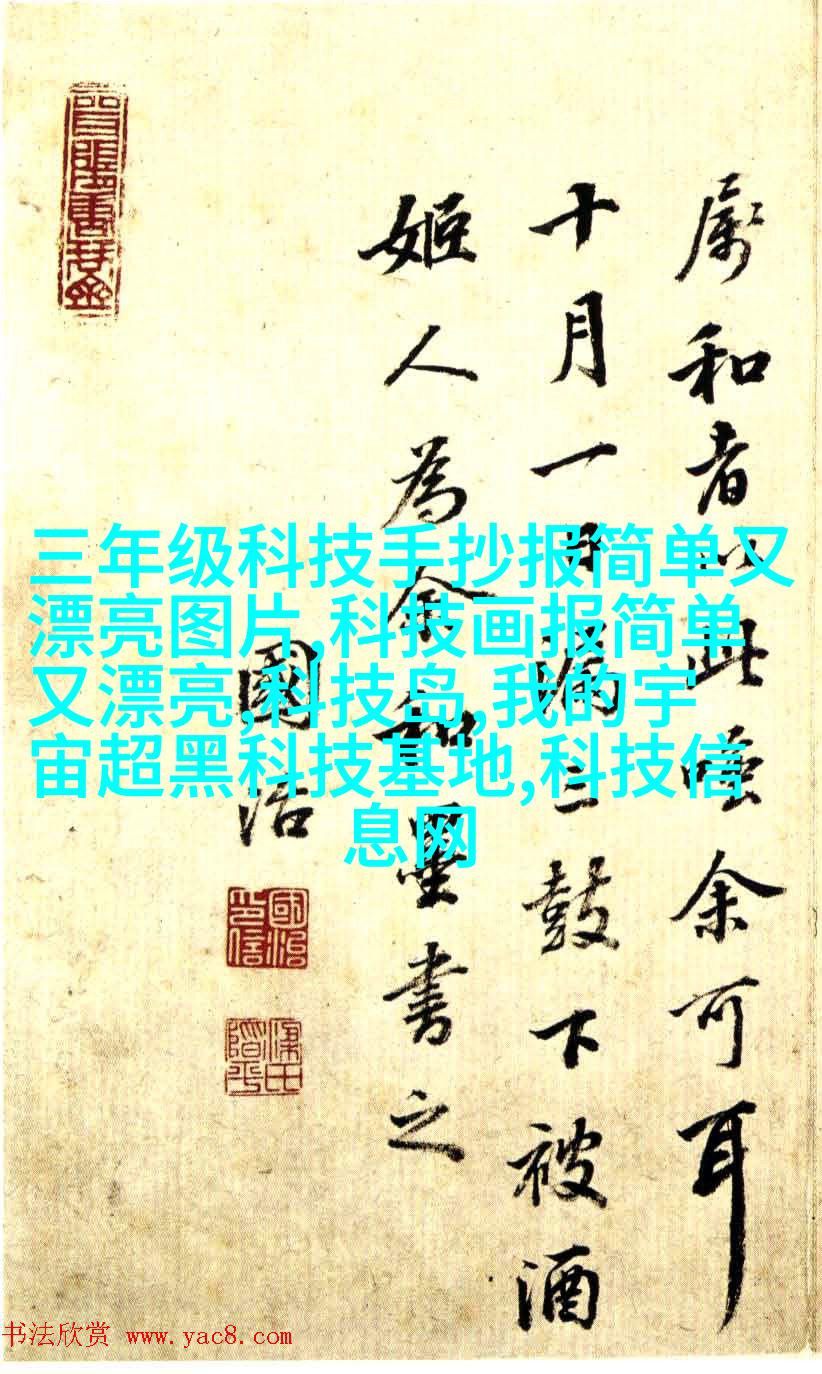 属和者以此噎余可耳
十月一日漏三鼓下被酒
姬人為余和墨书之
國治
國治
三年级科技手抄报简单又
漂亮图片,科技画报简单
又漂亮,科技岛,我的宇
宙超黑科技基地,科技信
息网
书法欣赏 www.yac8.com